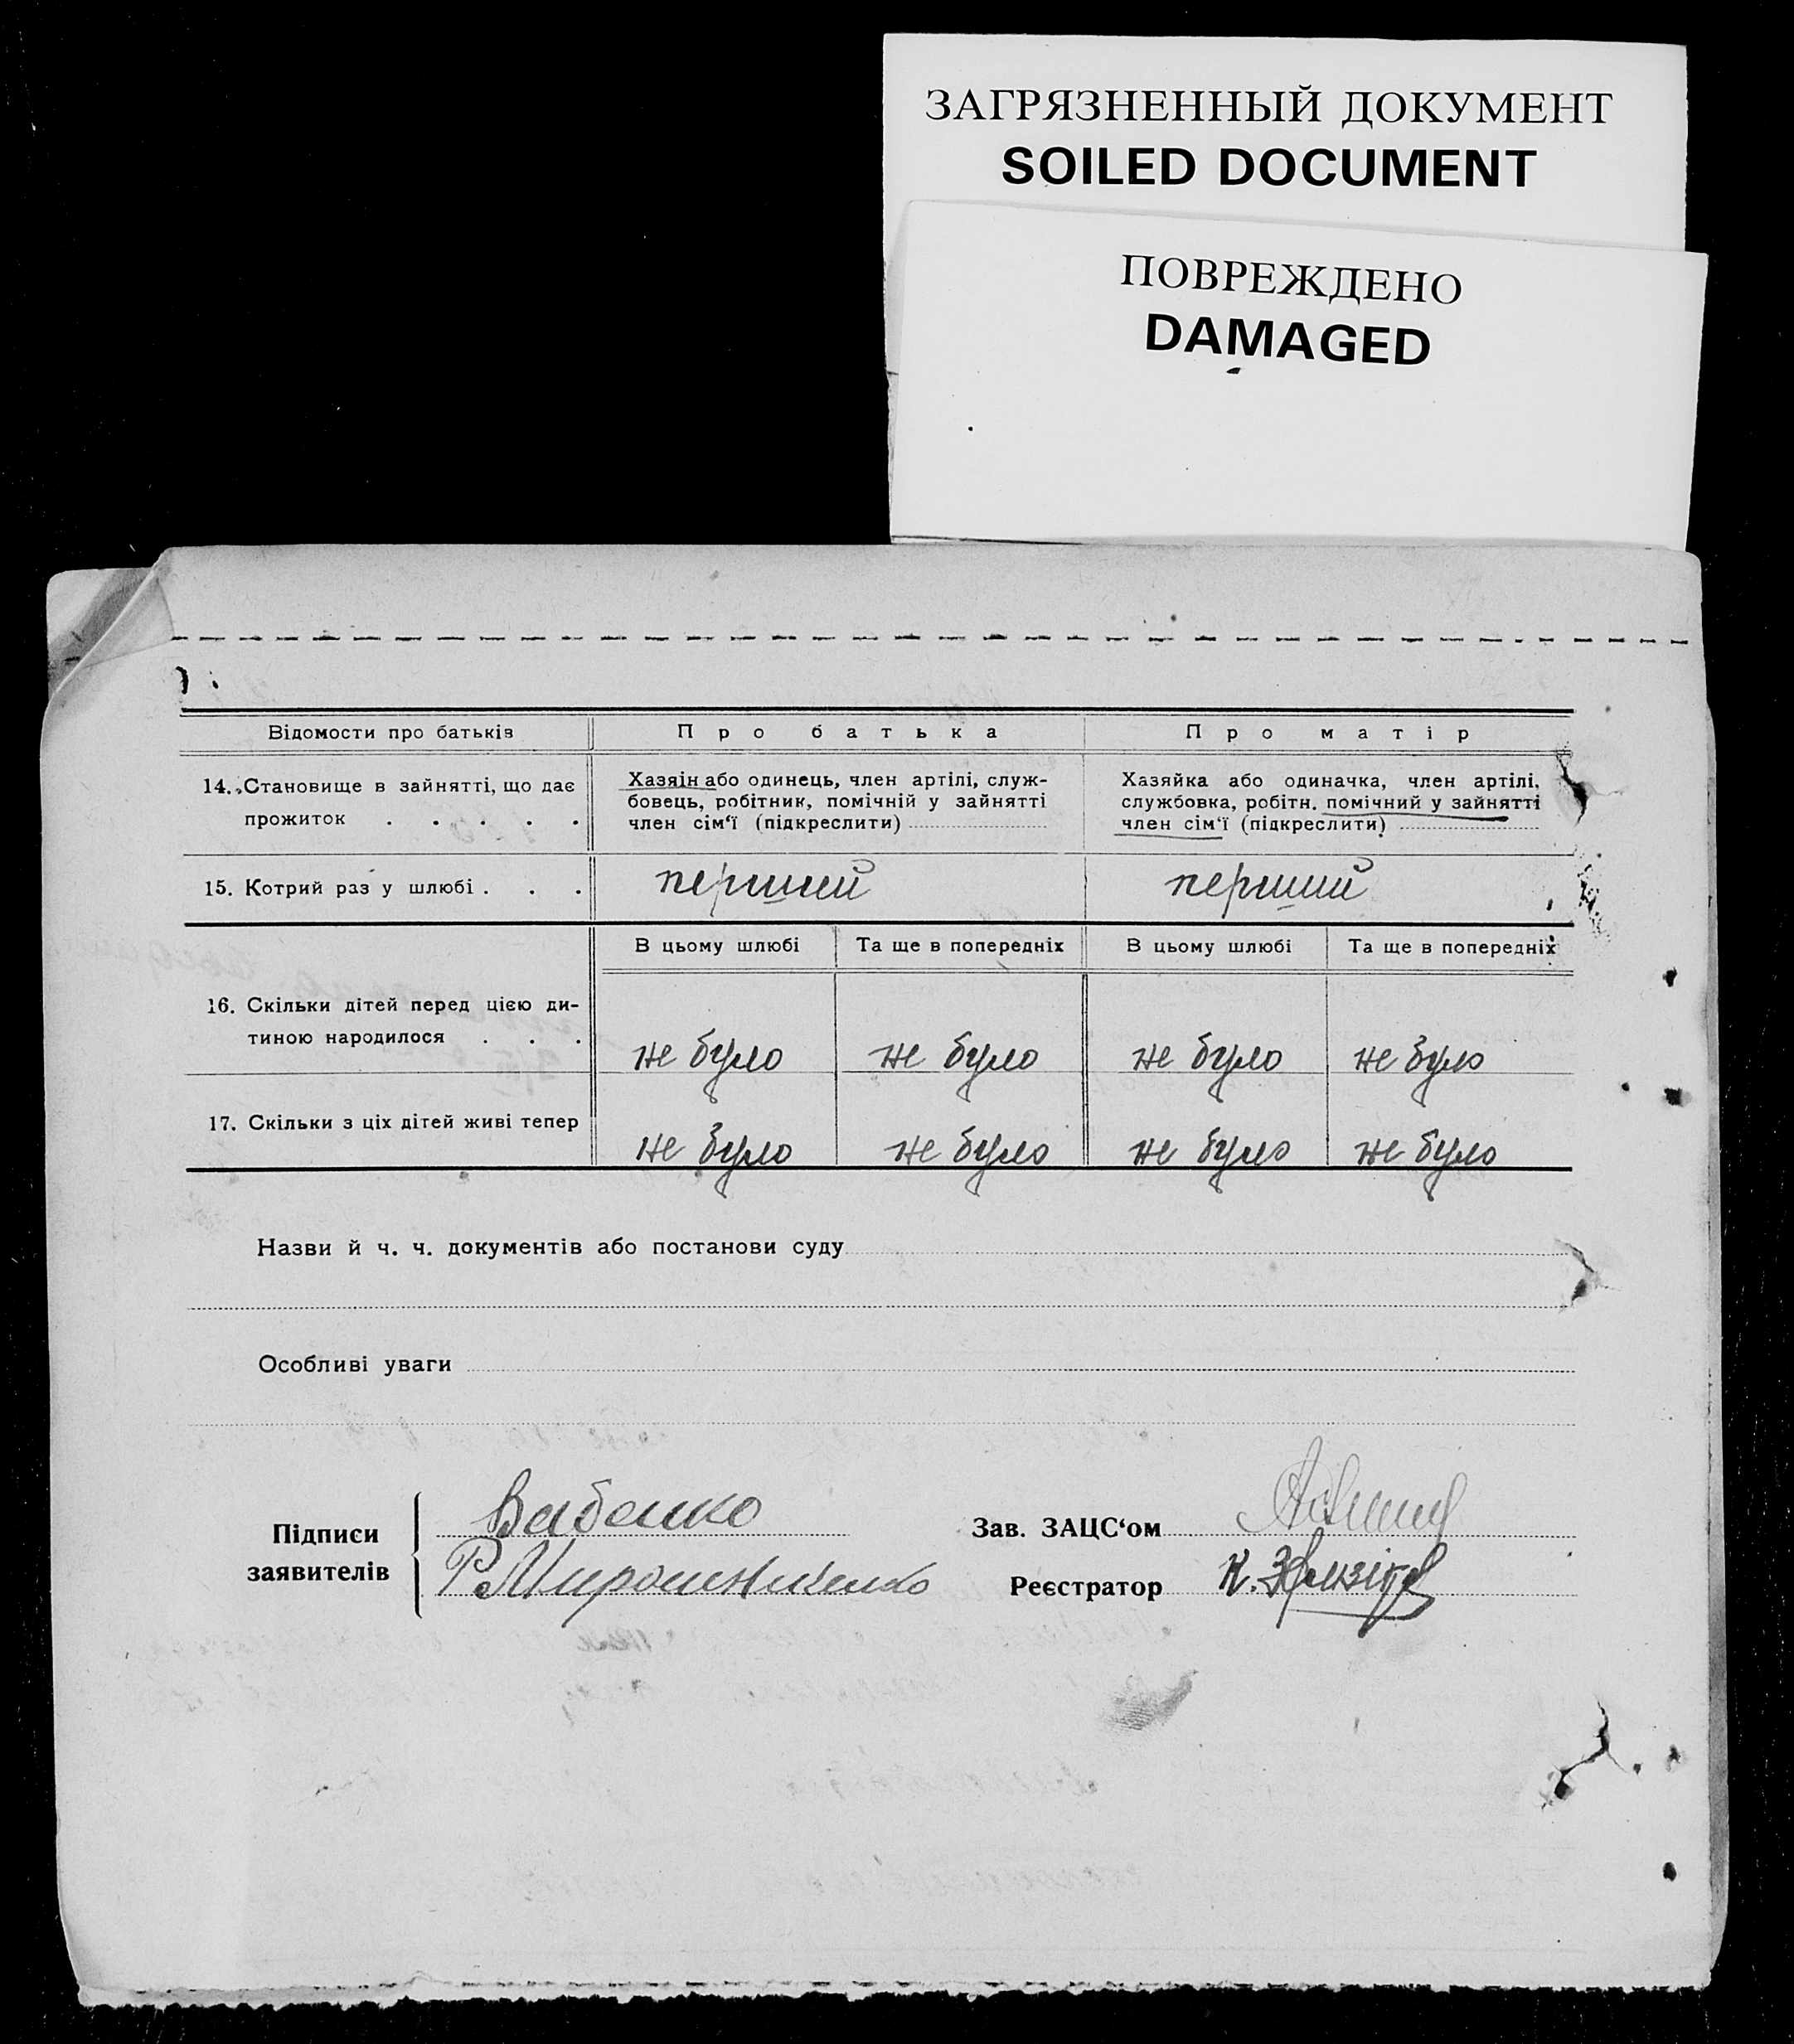 ЗАГРЯЗНЕННЫЙ ДОКУМЕНТ
SOILED DOCUMENT
ПОВРЕЖДЕНО
DAMAGED
Відомости про батьків Про батька Про матір
14. Становище в зайнятті, що дає прожиток . . . . .
Хазяін або одинець, член артілі, служ-
бовець, робітник, помічній у зайнятті
член сім‘ї (підкреслити)
Хазяйка або одиначка, член артілі,
службовка, робітн. помічний у зайнятті
член сім‘ї (підкреслити)
15. Котрий раз у шлюбі . . . перший перший
В цьому шлюбі Та ще в попередніх В цьому шлюбі Та ще в попередніх
16. Скільки дітей перед цією ди-
тиною народилося . . . не було не було не було не було
17. Скільки з ціх дітей живі тепер не було не було не було не було
Назви й ч. ч. документів або постанови суду
Особливі уваги
Підписи
заявителів
Бабенко
Р Мирошниченко
Зав. ЗАЦС‘ом
Реєстратор К.